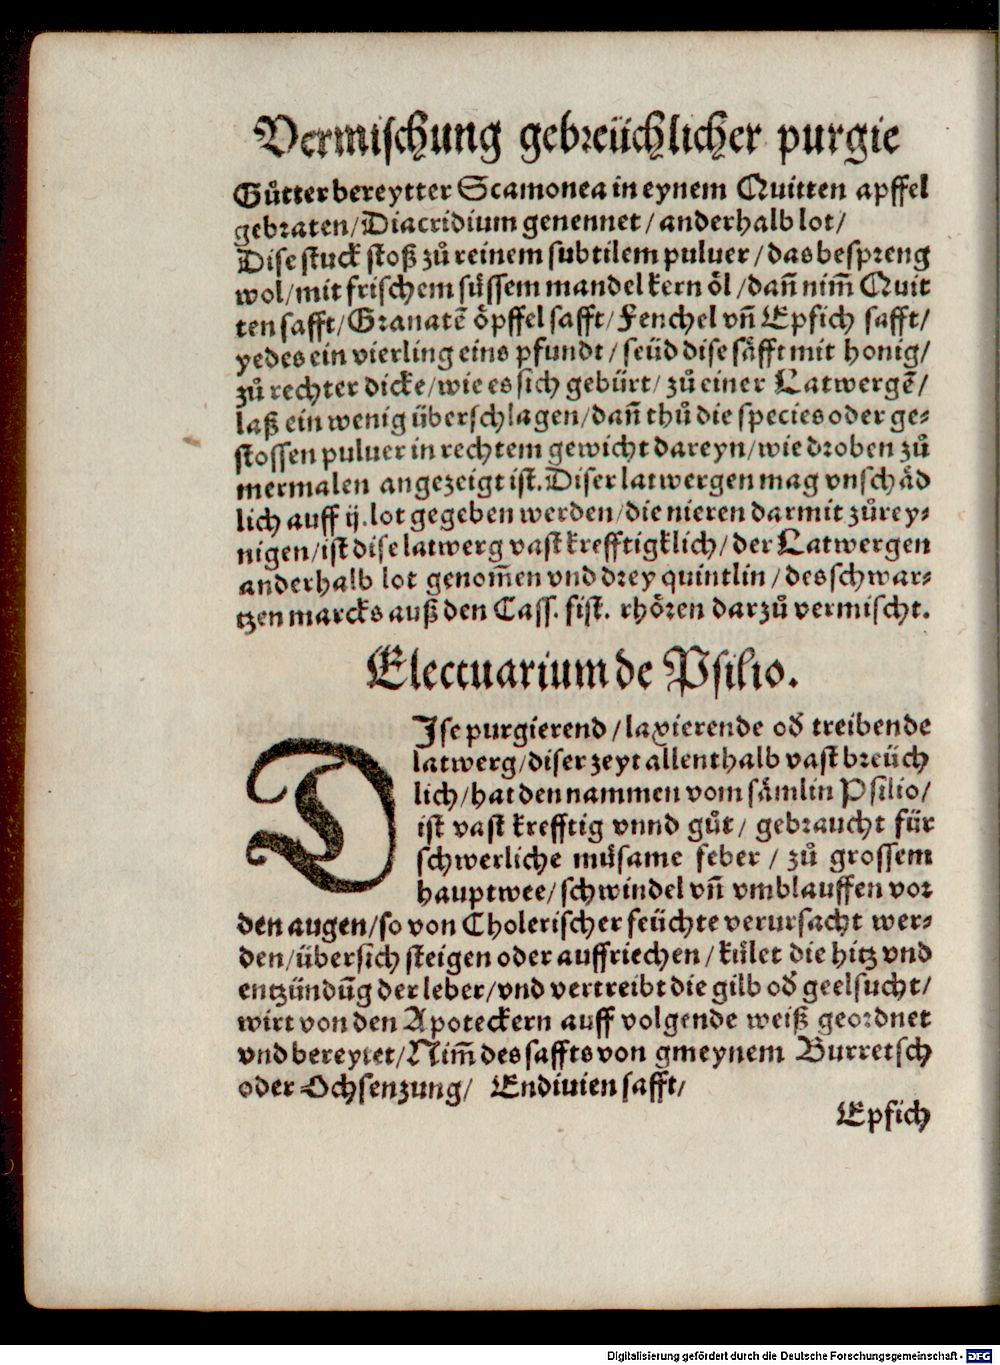 Vermischung gebreüchlicher purgie
Gůtter bereytter Scamonea in eynem Quitten apffel
gebraten/Diacridium genennet/anderhalb lot/
Dise stuck stoß zů reinem subtilem puluer/das bespreng
wol/mit frischem süssem mandel kern öl/dañ nim̃ Quit
ten safft/Granatẽ öpffel safft/Fenchel vñ Epfich safft/
yedes ein vierling eins pfundt/seüd dise säfft mit honig/
zů rechter dicke/wie es sich gebürt/zů einer Latwergẽ/
laß ein wenig überschlagen/dañ thů die species oder ge⸗
stossen puluer in rechtem gewicht dareyn/wie droben zů
mermalen angezeigt ist. Diser latwergen mag vnschäd
lich auff ij. lot gegeben werden/die nieren darmit zůrey⸗
nigen/ist dise latwerg vast krefftigklich/der Latwergen
anderhalb lot genom̃en vnd drey quintlin/des schwar⸗
tzen marcks auß den Cass. fist. rhören darzů vermischt.
Electuarium de Psilio.
DIse purgierend/laxierende od̕ treibende
latwerg/diser zeyt allenthalb vast breüch
lich/hat den nammen vom sämlin Psilio/
ist vast krefftig vnnd gůt/ gebraucht für
schwerliche müsame feber/ zů grossem
hauptwee/schwindel vñ vmblauffen vor
den augen/so von Cholerischer feüchte verursacht wer⸗
den/übersich steigen oder auffriechen/kület die hitz vnd
entzündũg der leber/vnd vertreibt die gilb od̕ geelsucht/
wirt von den Apoteckern auff volgende weiß geordnet
vnd bereytet/Nim̃ des saffts von gmeynem Burretsch
oder Ochsenzung/ Endiuien safft/
Epfich
Digitalisierung gefördert durch die Deutsche Forschungsgemeinschaft - DFG